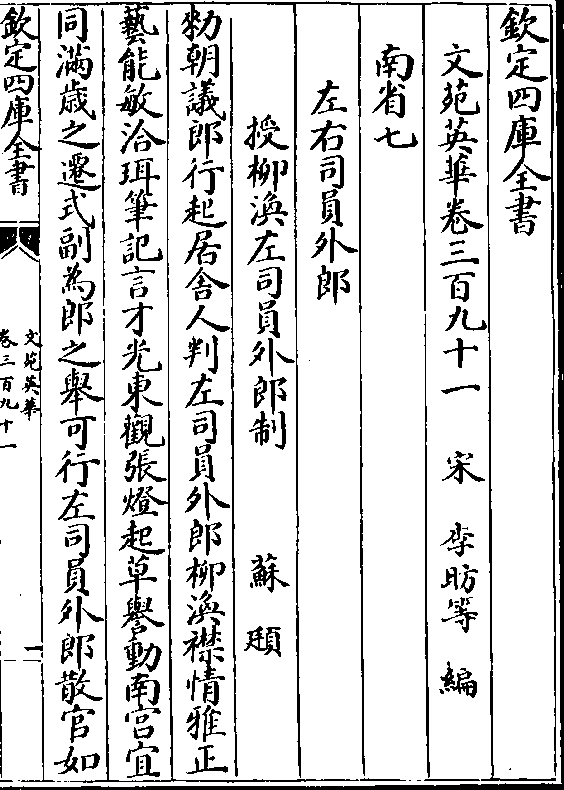 欽定四庫全書
文苑英華卷三百九十一　宋　李昉等　編
南省七
左右司員外郎
授柳渙左司員外郎制　蘇頲
勑朝議郎行起居舍人判左司員外郎柳渙襟情雅正
藝能敏洽珥筆記言才光東觀張燈起草譽動南宮宜
同滿歳之遷式副為郎之舉可行左司員外郎散官如
欽定四庫全書
文苑英華
卷三百九十一
一